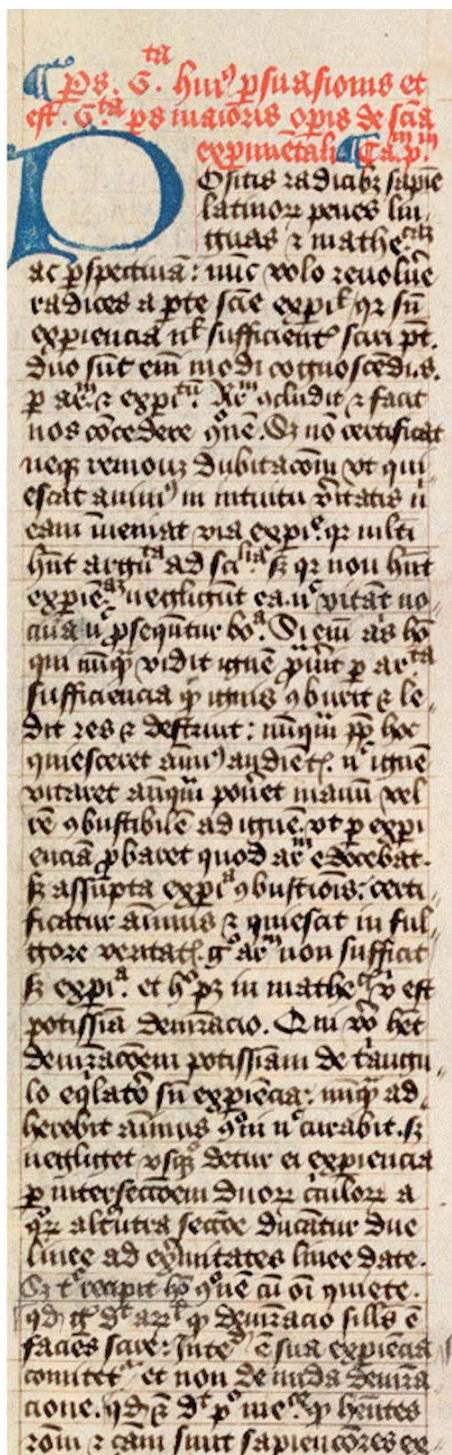 ¶ Ps. 6.ta hui9 ꝑsuasionis et
est. 6.ta ps maioris opis de scīa
expimētali ¶ Ca.m p.m
POsitis radicibꝫ sapīe
latinoꝝ penes lin,
guas ⁊ mathe.cam
ac ꝑspectiuā: nūc volo reuolu̅e
radices a ꝑte scīe expil̄ qꝛ sn̄
exꝑiencia nl̄ sufficient᷑ sciri pt̄.
duo sūt eīn modi cognoscēdi.s.
ꝑ arm. ⁊ expitū. Arm ꝯcludit ⁊ facit
nos cōcedere ꝯnē. Sꝫ nō certificat
neqꝫ remouꝫ dubitacōm vt qui
escat anim9 in intuitu ūitatis ni
eam īueniat via expi.e qꝛ multi
hn̄t argu.ta ad scilia. sꝫ qꝛ non hn̄t
expiē.az negligūt ea. nc vitāt no,
ciua nc ꝓsequūtur bo.a Si eīn aīs hō
qui nūqꝫ vidit ignē ꝓbau̅it ꝑ arta
sufficiencia ꝙ ignis ꝯburit ⁊ le,
dit res ⁊ destruit: nūqm̄ ꝓp hoc
quiesceret anim9 audiētꝭ. nc ignē
vitaret anteqm̄ pōn̄et manū vel
rē ꝯbustibilē ad ignē. vt ꝑ expi
enciā ꝓbaret quod arm edocebat.
sꝫ assūpta expi.a ꝯbustionis: certi,
ficatur anim9 ⁊ quiescit in ful,
gore veritatꝭ. go arm non sufficit
sꝫ expi.a et hoc pꝫ in mathecis vbi est
potissīa demr̄acio. Qui vo hēt
demr̄acōem potissīam de t̅angu,,
lo eqlato sn̄ expiēcia: nūqꝫ ad,
herebit anim9 ꝯni nc curabit. sꝫ
negliget vsqꝫ detur ei expiencia
ꝑ intersectōem duoꝝ ciculoꝝ a
qoꝝ alt̅utra sectōe ducātur due
linee ad ext̅mitates linee date.
Sꝫ tc recipit hō ꝯnē cū oī quiete.
qd gº dt arl̄ ꝙ demr̄acio sill̄s ē
faciēs scire: Inteo. ē si sua expiēcia
comitet᷑ et non de nuda demr̄a
cione. qd ⁊ dt po meca ꝙ hn̄tes
rōm ⁊ cam sunt sapienciores ex,